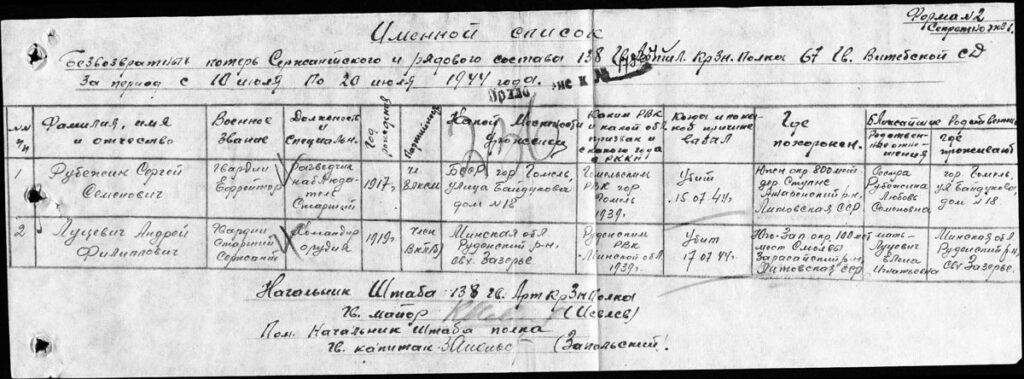 Форма №2
Секретно экз 1.
Именной список
Безвозвратных потерь Сержантского и рядового состава 138 Гв. Арт. Крзн. Полка 67 Гв. Витебской СД
За период с 10 июля По 20 июля 1944 года.
Прило к
№№ п/п
Фамилия, имя и отчество
Военное Звание
Должность и Специальн.
Год рождения
Партийная
Какой Местности уроженец
Каким РВК и какой обл. призван и с какого года в РККА
Когда и по какой причине выбыл
Где похоронен.
Ближайшие Родственники
Родствен. отношения
где проживают
1
Рубежин Сергей Семенович
Гвардии Ефрейтор
Разведчик наблюдатель Старший
1917г.
чл ВЛКСМ
БССР гор Гомель, улица Байдукова дом №18
Гомельским РВК гор Гомель 1939г.
Убит 15.07.44г
Южн окр 800 мет дер Литовская ССР
Сестра Рубежина Любовь Семеновна
гор Гомель, ул Байдукова, дом №18.
2
Луцевич Андрей Филиппович
Гвардии Старший Сержант
Командир орудия
1919г.
член ВКП(б)
Минская обл Руденский р-н. свх. Зазерье
Руденским РВК Минской обл 1939г.
Убит 17.07.44г
Юго-Зап окр 100 мет мест Смолвы Зарасайский р-н. Литовская ССР
мать- Луцевич Елена Игнатьевна
Минской обл Руденский р-н, свх Зазерье.
Начальник Штаба 138 гв. Арт Крзн. Полка
гв. майор (Шевлев)
Пом. Начальник Штаба полка
гв. капитан (Запольский).